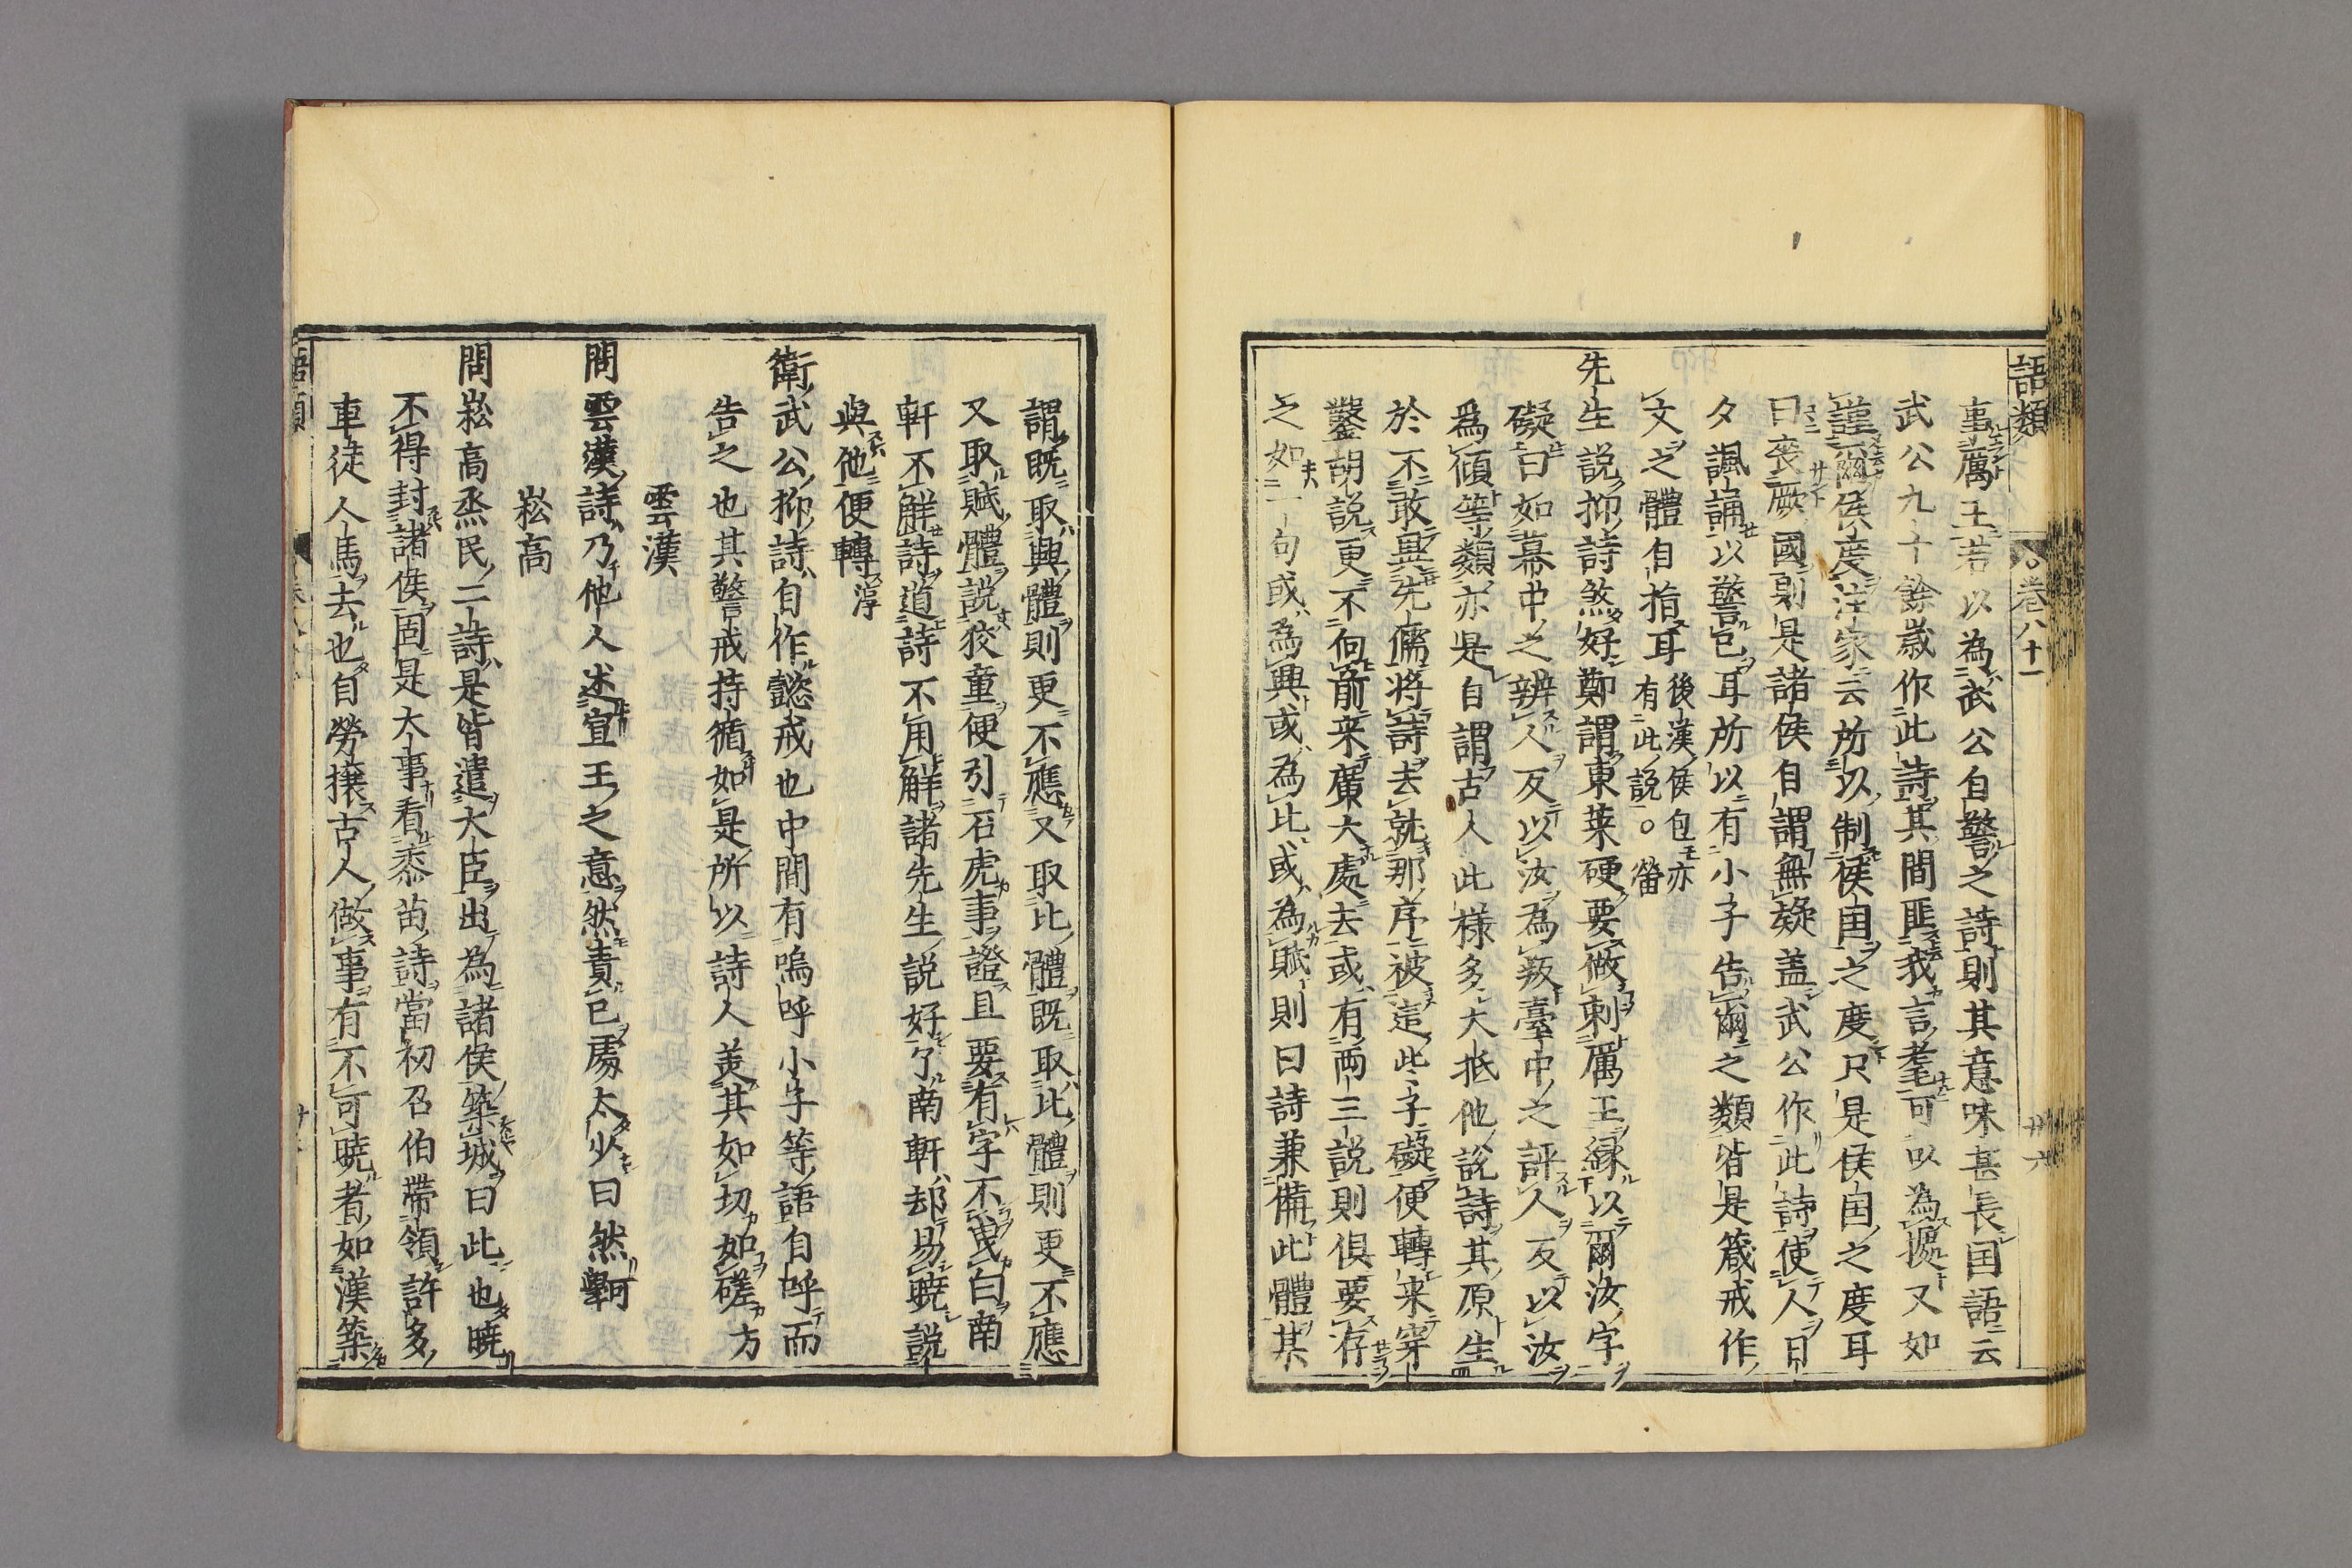 語類 卷八十一 廿六
事厲王若以為武公自警之詩則其意味甚長国語云
武公九十餘歲作此詩其間匪我言耄可以為據又如
謹爾侯度注家云所以制侯国之度只是侯国之度耳
曰喪厥國則是諸侯自謂無疑盖武公作此詩使人日
夕諷誦以警已耳所以有小子告爾之類皆是箴戒作
文之體自指耳後漢侯包亦有此說○㽦
先生說抑詩煞好鄭謂東萊硬要做刺厲王緣以爾汝字
礙曰如幕中之辨人反以汝為叛臺中之評人反以汝
為傾等類亦是自謂古人此樣多大抵他說詩其原生
於不敢異先儒將詩去就那序被這些子礙便轉来穿
鑿胡說更不向前来廣大處去或有兩三說則俱要存
之如一句或為興或為比或為賦則曰詩兼備此體某
謂既取興體則更不應又取比體既取比體則更不應
又取賦體說狡童便引石虎事證且要有字不曳白南
軒不解詩道詩不用解諸先生說好了南軒却易曉說
與他便轉淳
衛武公抑詩自作懿戒也中間有嗚呼小子等語自呼而
告之也其警戒持循如是所以詩人美其如切如磋方
雲漢
問雲漢詩乃他人述宣王之意然責已處太少曰然㽦
崧高
問崧高烝民二詩是皆遣大臣出為諸侯築城曰此也曉
不得封諸侯固是大事看黍苗詩當初召伯帶領許多
車徒人馬去也自勞攘古人做事有不可曉者如漢築
語類